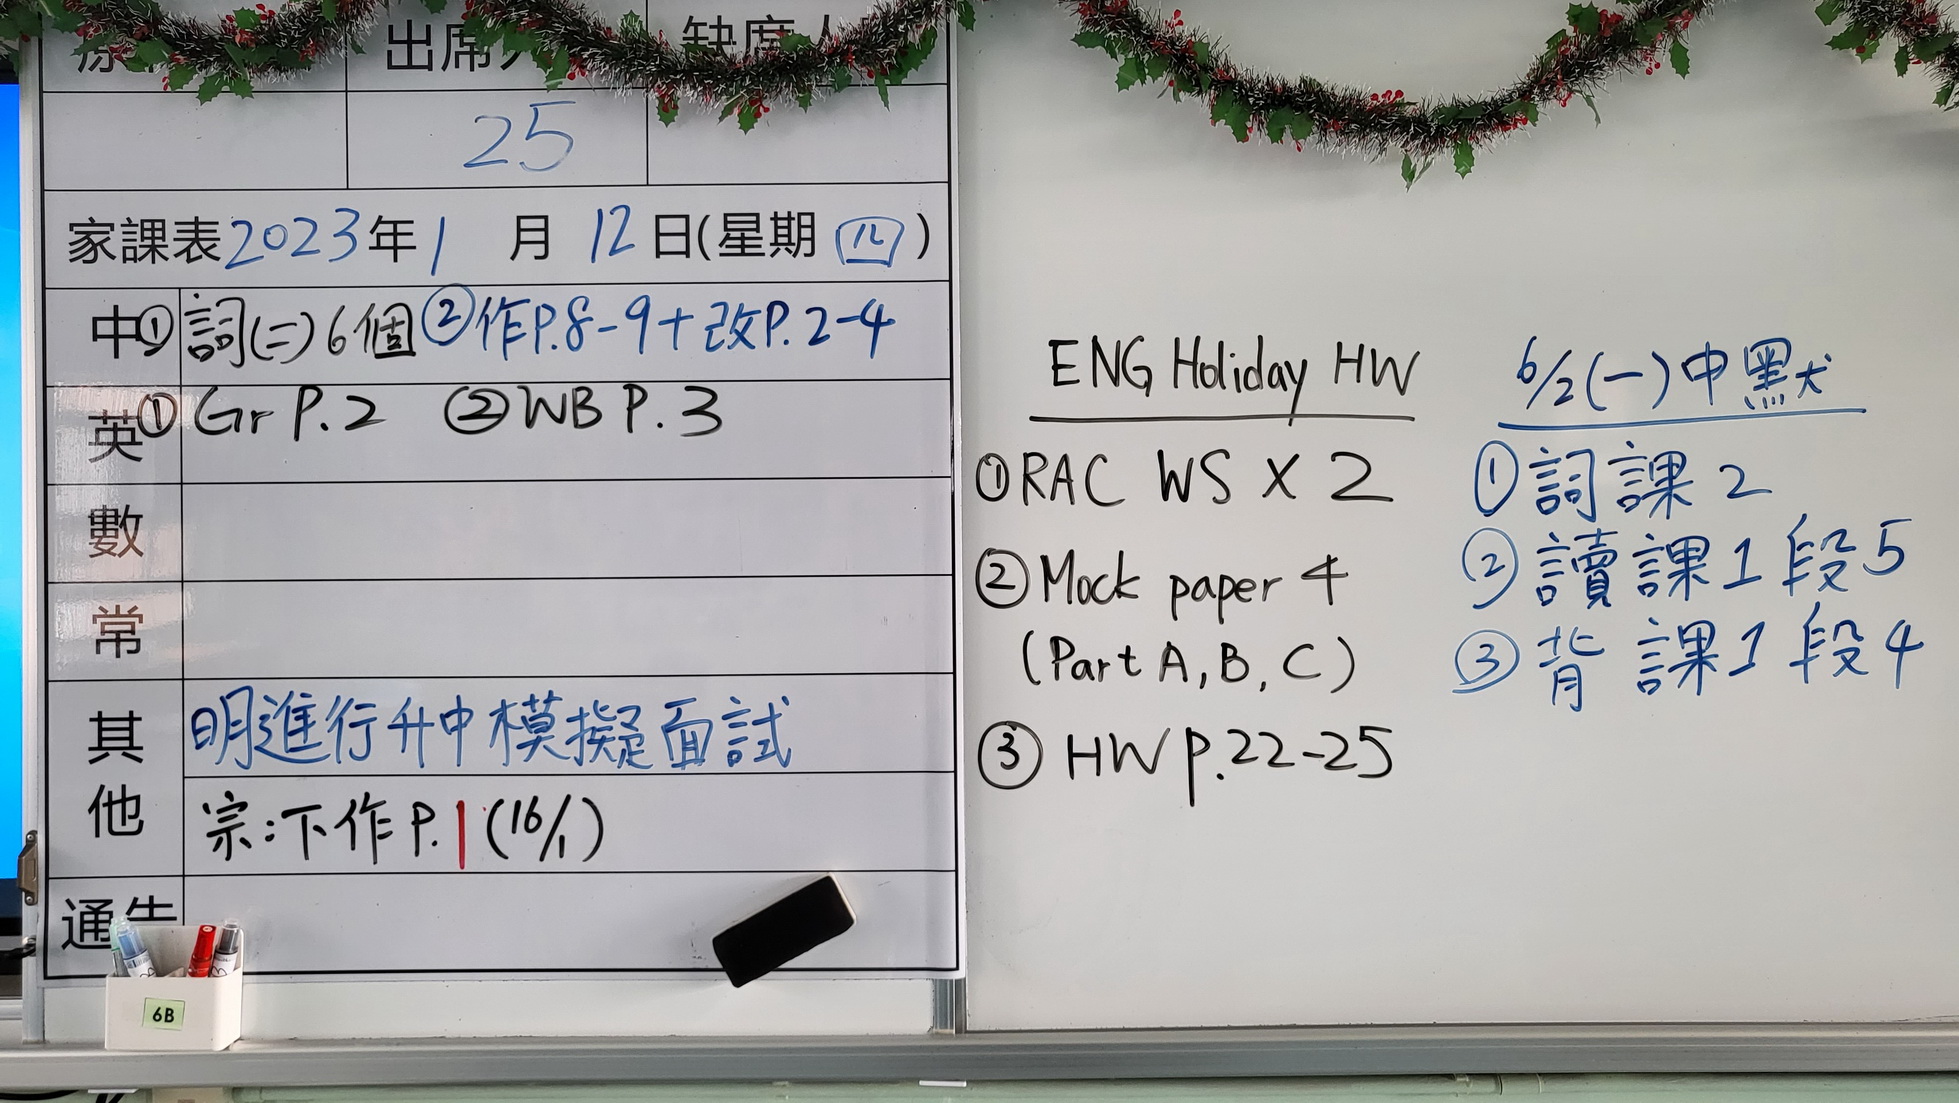 出席人
缺席人
25
家課表2023年1月12日(星期四)
中①詞(二)6個②作P.8-9+改P.2-4
英①Gr P.2 ②WB P.3
數
常
其他
明進行升中模擬面試
宗:下作P.1(16/1)
通告
6B
ENG Holiday HW
①RAC WS X 2
②Mock paper 4
(Part A, B, C)
③HW p.22-25
6/2(一)中默
①詞課2
②讀課1段5
③背課1段4